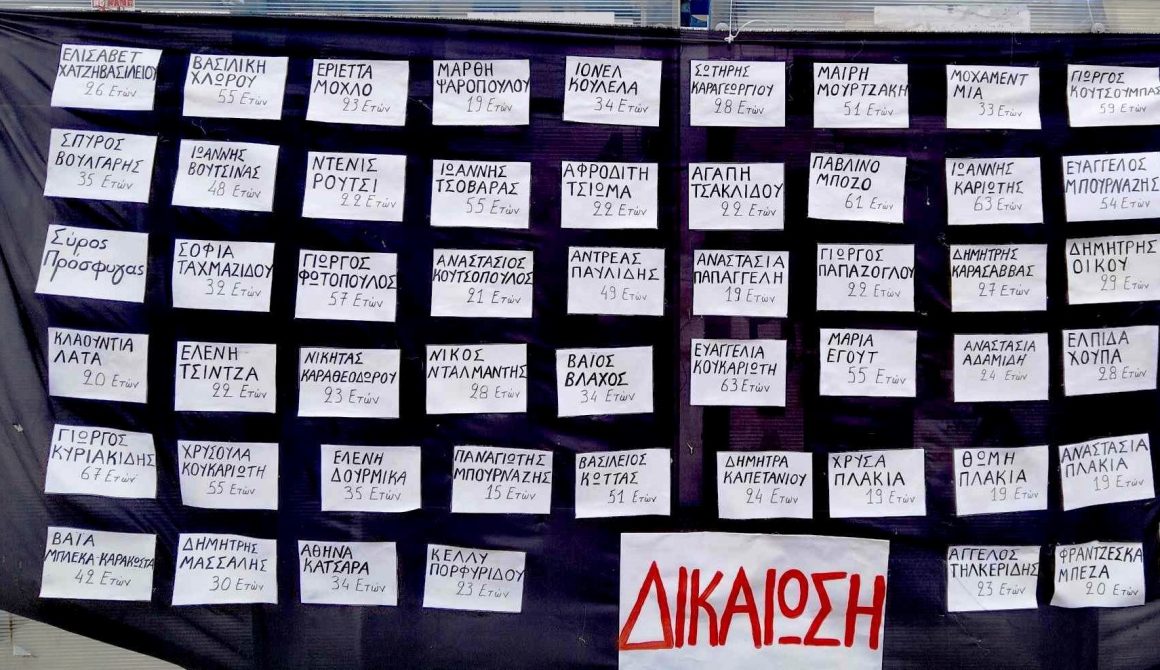 ΕΛΙΣΑΒΕΤ
ΧΑΤΖΗΒΑΣΙΛΕΙΟΥ
26 Ετών
ΒΑΣΙΛΙΚΗ
ΧΛΩΡΟΥ
55 Ετών
ΕΡΙΕΤΤΑ
ΜΟΛΧΟ
23 Ετών
ΜΑΡΘΗ
ΨΑΡΟΠΟΥΛΟΥ
19 Ετών
ΙΟΝΕΛ
ΚΟΥΛΕΛΑ
34 Ετών
ΣΩΤΗΡΗΣ
ΚΑΡΑΓΕΩΡΓΙΟΥ
28 Ετών
ΜΑΙΡΗ
ΜΟΥΡΤΖΑΚΗ
51 Ετών
ΜΟΧΑΜΕΝΤ
ΜΙΑ
33 Ετών
ΓΙΩΡΓΟΣ
ΚΟΥΤΣΟΥΜΠΑΣ
59 Ετών
ΣΠΥΡΟΣ
ΒΟΥΛΓΑΡΗΣ
35 Ετών
ΙΩΑΝΝΗΣ
ΒΟΥΤΣΙΝΑΣ
48 Ετών
ΝΤΕΝΙΣ
ΡΟΥΤΣΙ
22 Ετών
ΙΩΑΝΝΗΣ
ΤΣΟΒΑΡΑΣ
55 Ετών
ΑΦΡΟΔΙΤΗ
ΤΣΙΩΜΑ
22 Ετών
ΑΓΑΠΗ
ΤΣΑΚΛΙΔΟΥ
22 Ετών
ΠΑΒΛΙΝΟ
ΜΠΟΖΟ
61 Ετών
ΙΩΑΝΝΗΣ
ΚΑΡΙΩΤΗΣ
63 Ετών
ΕΥΑΓΓΕΛΟΣ
ΜΠΟΥΡΝΑΖΗΣ
54 Ετών
Σύρος
Πρόσφυγας
ΣΟΦΙΑ
ΤΑΧΜΑΖΙΔΟΥ
32 Ετών
ΓΙΩΡΓΟΣ
ΦΩΤΟΠΟΥΛΟΣ
57 Ετών
ΑΝΑΣΤΑΣΙΟΣ
ΚΟΥΤΣΟΠΟΥΛΟΣ
21 Ετών
ΑΝΤΡΕΑΣ
ΠΑΥΛΙΔΗΣ
49 Ετών
ΑΝΑΣΤΑΣΙΑ
ΠΑΠΑΓΓΕΛΗ
19 Ετών
ΓΙΩΡΓΟΣ
ΠΑΠΑΖΟΓΛΟΥ
22 Ετών
ΔΗΜΗΤΡΗΣ
ΚΑΡΑΣΑΒΒΑΣ
27 Ετών
ΔΗΜΗΤΡΗΣ
ΟΙΚΟΥ
29 Ετών
ΚΛΑΟΥΝΤΙΑ
ΛΑΤΑ
20 Ετών
ΕΛΕΝΗ
ΤΣΙΝΤΖΑ
22 Ετών
ΝΙΚΗΤΑΣ
ΚΑΡΑΘΕΟΔΩΡΟΥ
23 Ετών
ΝΙΚΟΣ
ΝΤΑΛΜΑΝΤΗΣ
28 Ετών
ΒΑΙΟΣ
ΒΛΑΧΟΣ
34 Ετών
ΕΥΑΓΓΕΛΙΑ
ΚΟΥΚΑΡΙΩΤΗ
63 Ετών
ΜΑΡΙΑ
ΕΓΟΥΤ
55 Ετών
ΑΝΑΣΤΑΣΙΑ
ΑΔΑΜΙΔΗ
24 Ετών
ΕΛΠΙΔΑ
ΧΟΥΠΑ
28 Ετών
ΓΙΩΡΓΟΣ
ΚΥΡΙΑΚΙΔΗΣ
67 Ετών
ΧΡΥΣΟΥΛΑ
ΚΟΥΚΑΡΙΩΤΗ
55 Ετών
ΕΛΕΝΗ
ΔΟΥΡΜΙΚΑ
35 Ετών
ΠΑΝΑΓΙΩΤΗΣ
ΜΠΟΥΡΝΑΖΗΣ
15 Ετών
ΒΑΣΙΛΕΙΟΣ
ΚΩΤΤΑΣ
51 Ετών
ΔΗΜΗΤΡΑ
ΚΑΠΕΤΑΝΙΟΥ
24 Ετών
ΧΡΥΣΑ
ΠΛΑΚΙΑ
19 Ετών
ΘΩΜΗ
ΠΛΑΚΙΑ
19 Ετών
ΑΝΑΣΤΑΣΙΑ
ΠΛΑΚΙΑ
19 Ετών
ΒΑΙΑ
ΜΠΛΕΚΑ-ΚΑΡΑΚΩΣΤΑ
42 Ετών
ΔΗΜΗΤΡΗΣ
ΜΑΣΣΑΛΗΣ
30 Ετών
ΑΘΗΝΑ
ΚΑΤΣΑΡΑ
34 Ετών
ΚΕΛΛΥ
ΠΟΡΦΥΡΙΔΟΥ
23 Ετών
ΔΙΚΑΙΩΣΗ
ΑΓΓΕΛΟΣ
ΤΗΛΚΕΡΙΔΗΣ
23 Ετών
ΦΡΑΝΤΖΕΣΚΑ
ΜΠΕΖΑ
20 Ετών